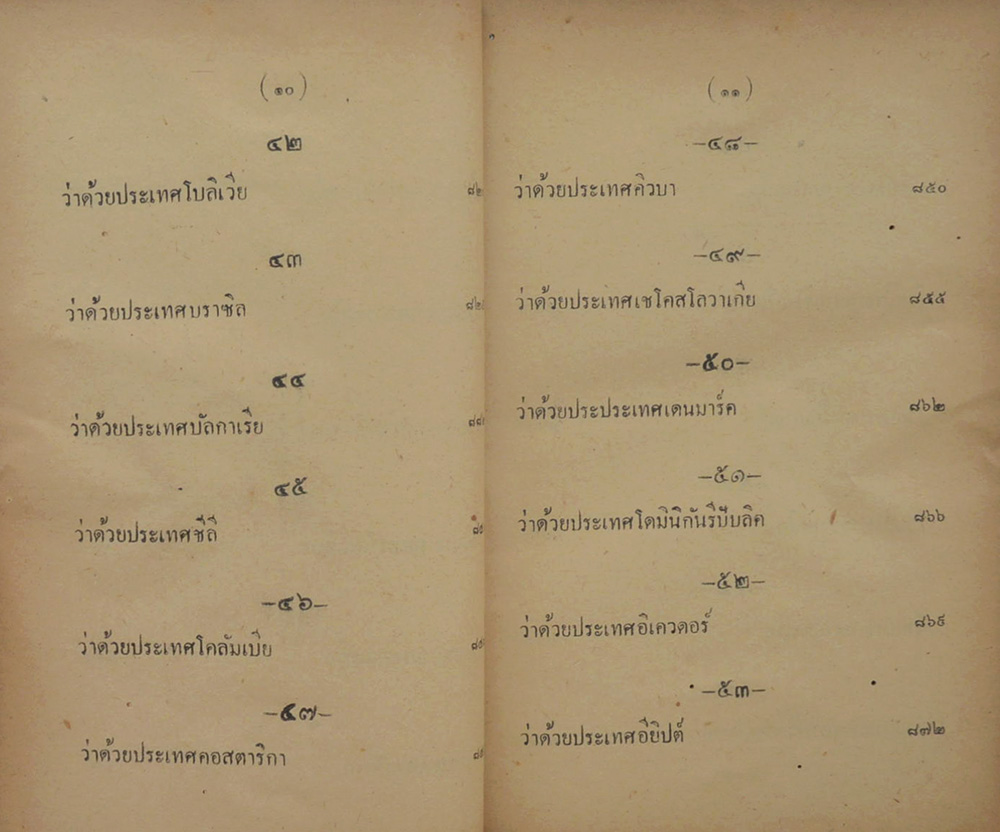 (๑๐)
๔๒
ว่าด้วยประเทศโบลิเวีย
๔๓
ว่าด้วยประเทศบราซิล
๔๔
ว่าด้วยประเทศบัลกาเรีย
๔๕
ว่าด้วยประเทศชีลี
—๔๖—
ว่าด้วยประเทศโคลัมเบีย
—๔๗—
ว่าด้วยประเทศคอสตาริกา
(๑๑)
—๔๘—
ว่าด้วยประเทศคิวบา ๘๕๐
—๔๙—
ว่าด้วยประเทศเชโคสโลวาเกีย ๘๕๕
—๕๐—
ว่าด้วยประประเทศเดนมาร์ค ๘๖๒
—๕๑—
ว่าด้วยประเทศโดมินิกันรีปับลิค ๘๖๖
—๕๒—
ว่าด้วยประเทศอิเควดอร์ ๘๖๙
—๕๓—
ว่าด้วยประเทศอียิปต์ ๘๗๒